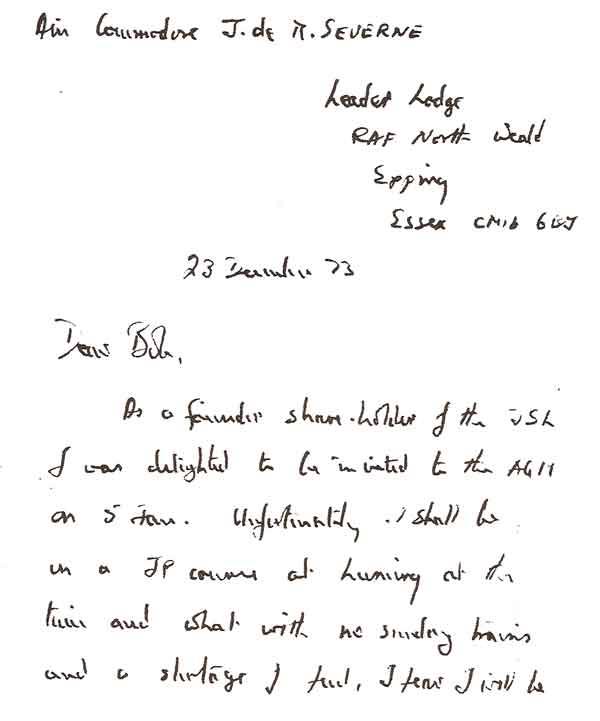 Air Commodore J. de M. SEVERNE
Leader Lodge
RAF North Weald
Epping
Essex CM16
23 December 73
Dear Bob,
As a founder share-holder of the
I was delighted to be invited to the AGM
on 5 Jan. Unfortunately I shall be
on a JP course at at the
time and what with no sunday trains
and a shortage of fuel, I fear I will be